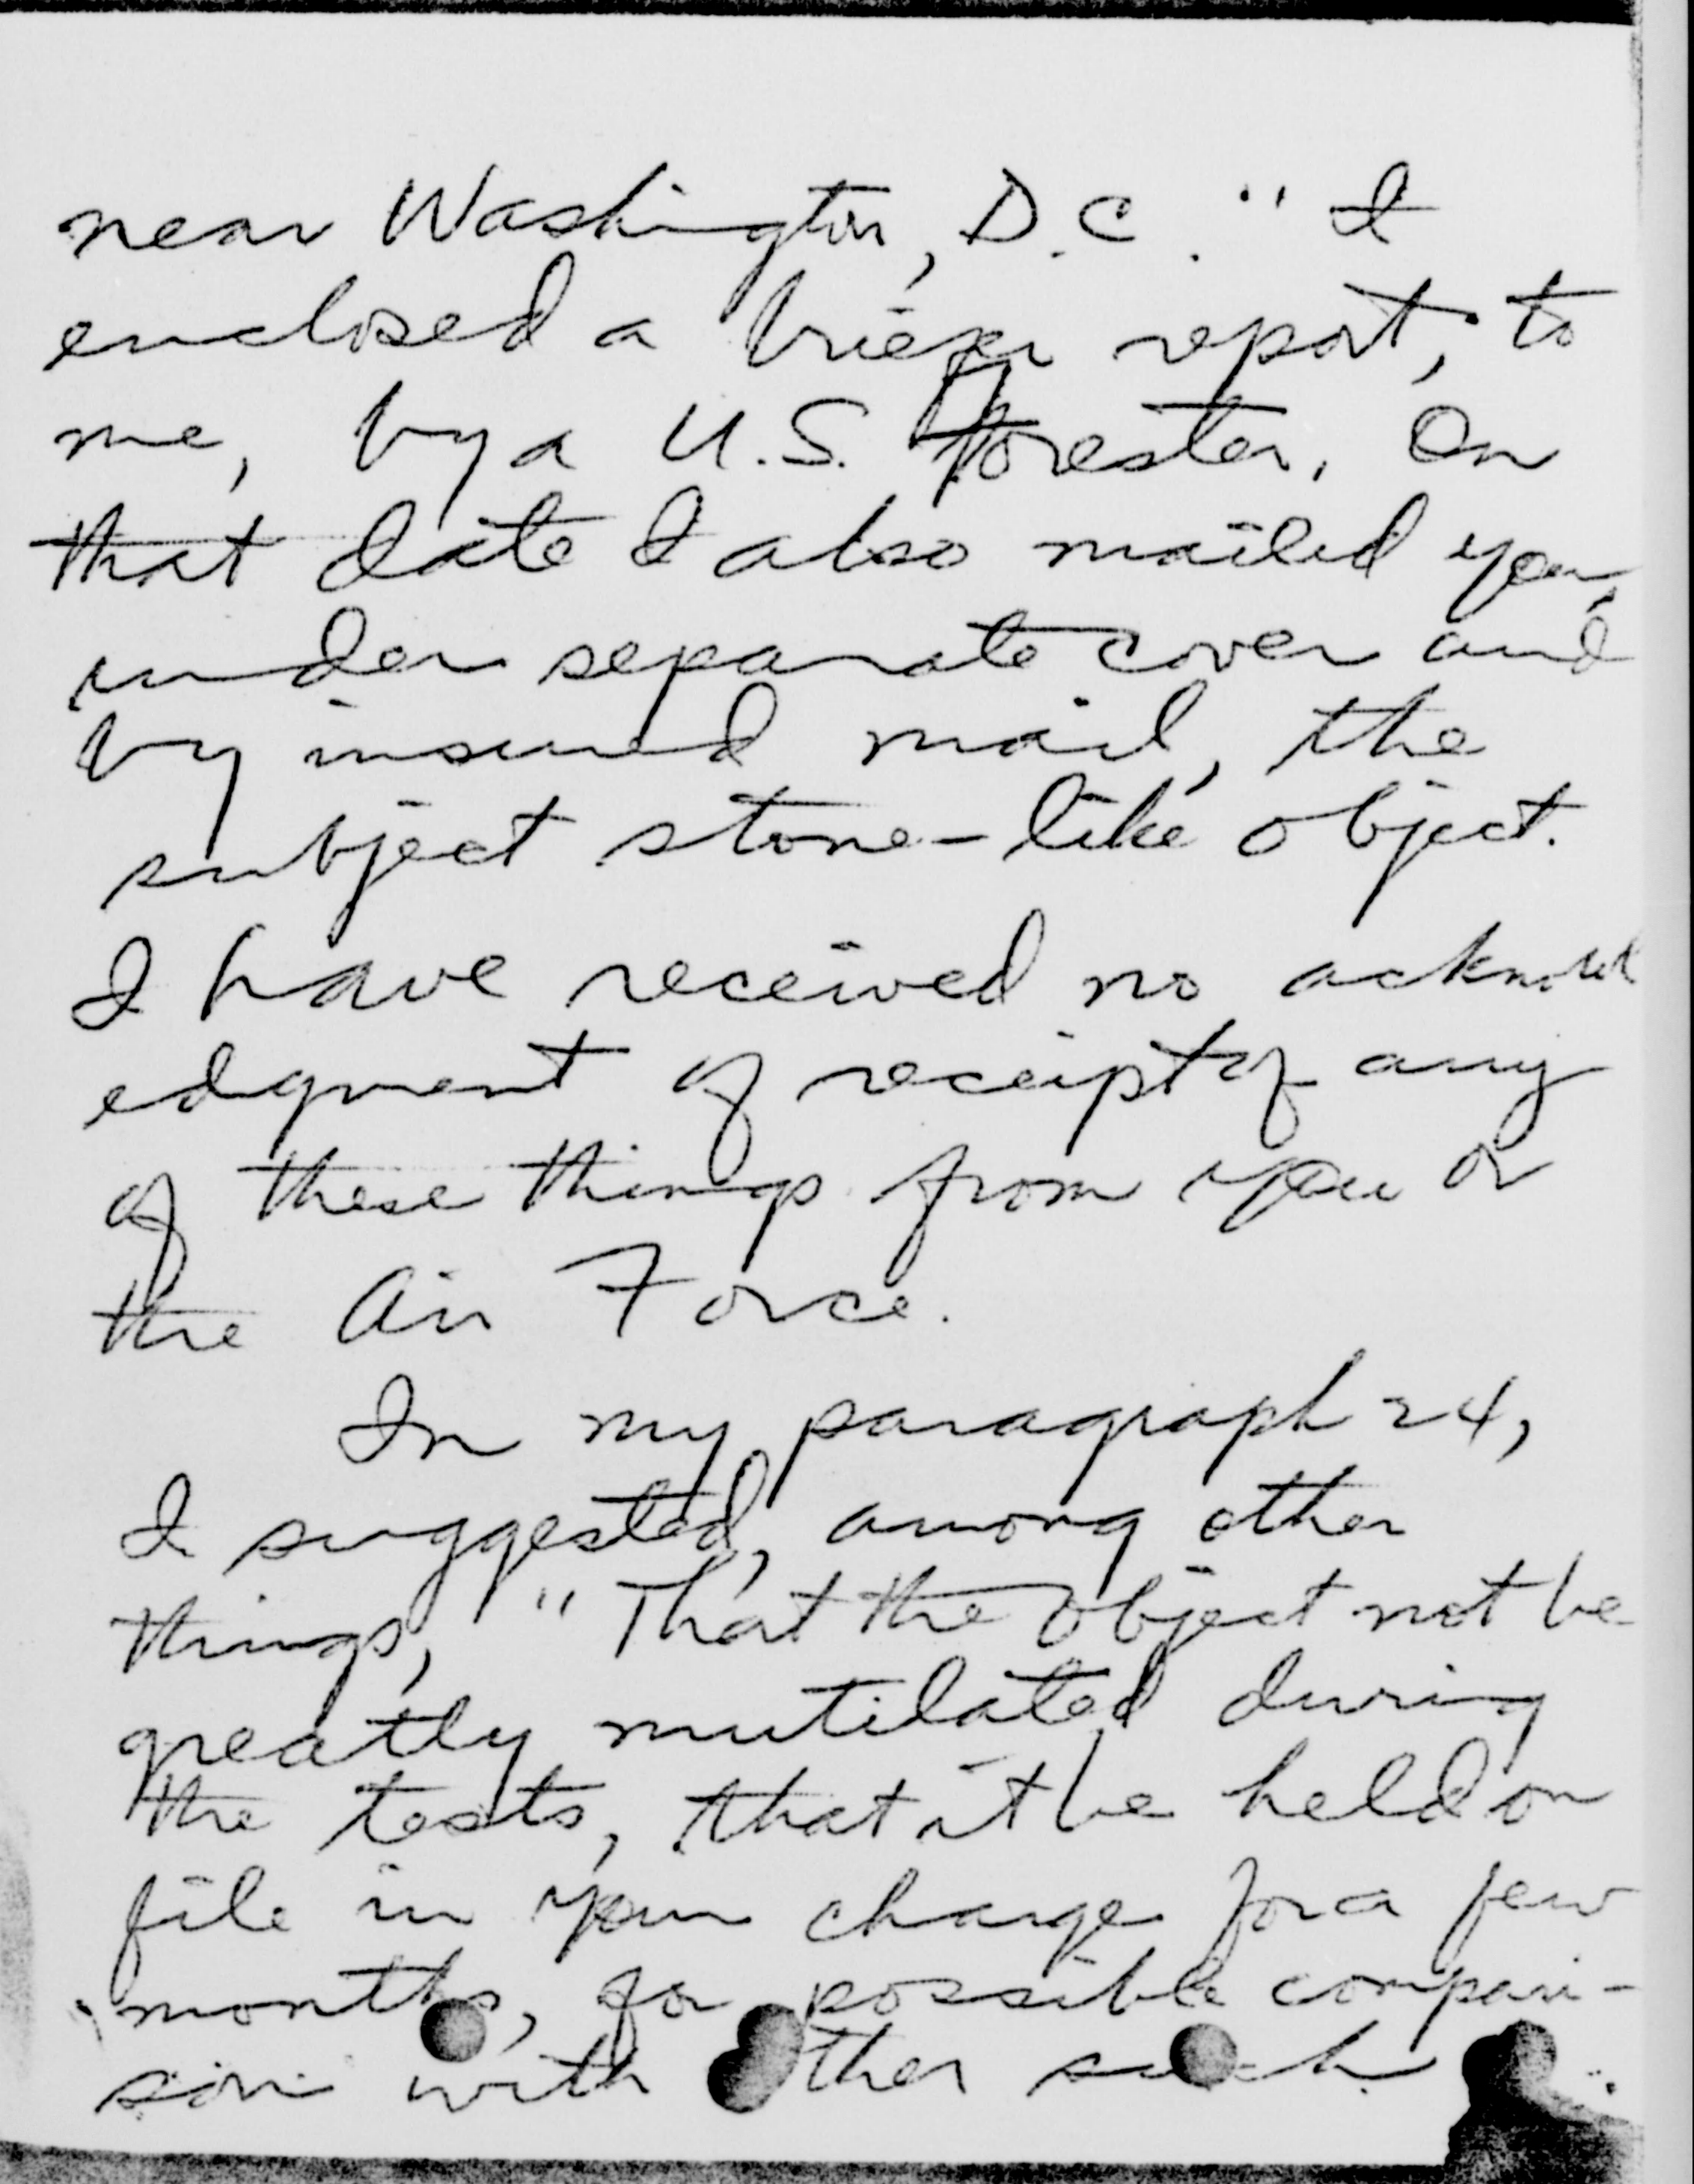 near Washington, D.C." I
enclosed a brief report, to
me, by a U.S. Forester. On
that date I also mailed you,
under separate cover and
by insured mail, the
subject stone-like object.
I have received no acknowl
edgment of receipt of any
of these things from you or
the Air Force.
In my paragraph 24,
I suggested, among other
things, "That the object not be
greatly mutilated during
the tests, that it be held on
file in your charge for a few
months, for possible compari-
son with other such